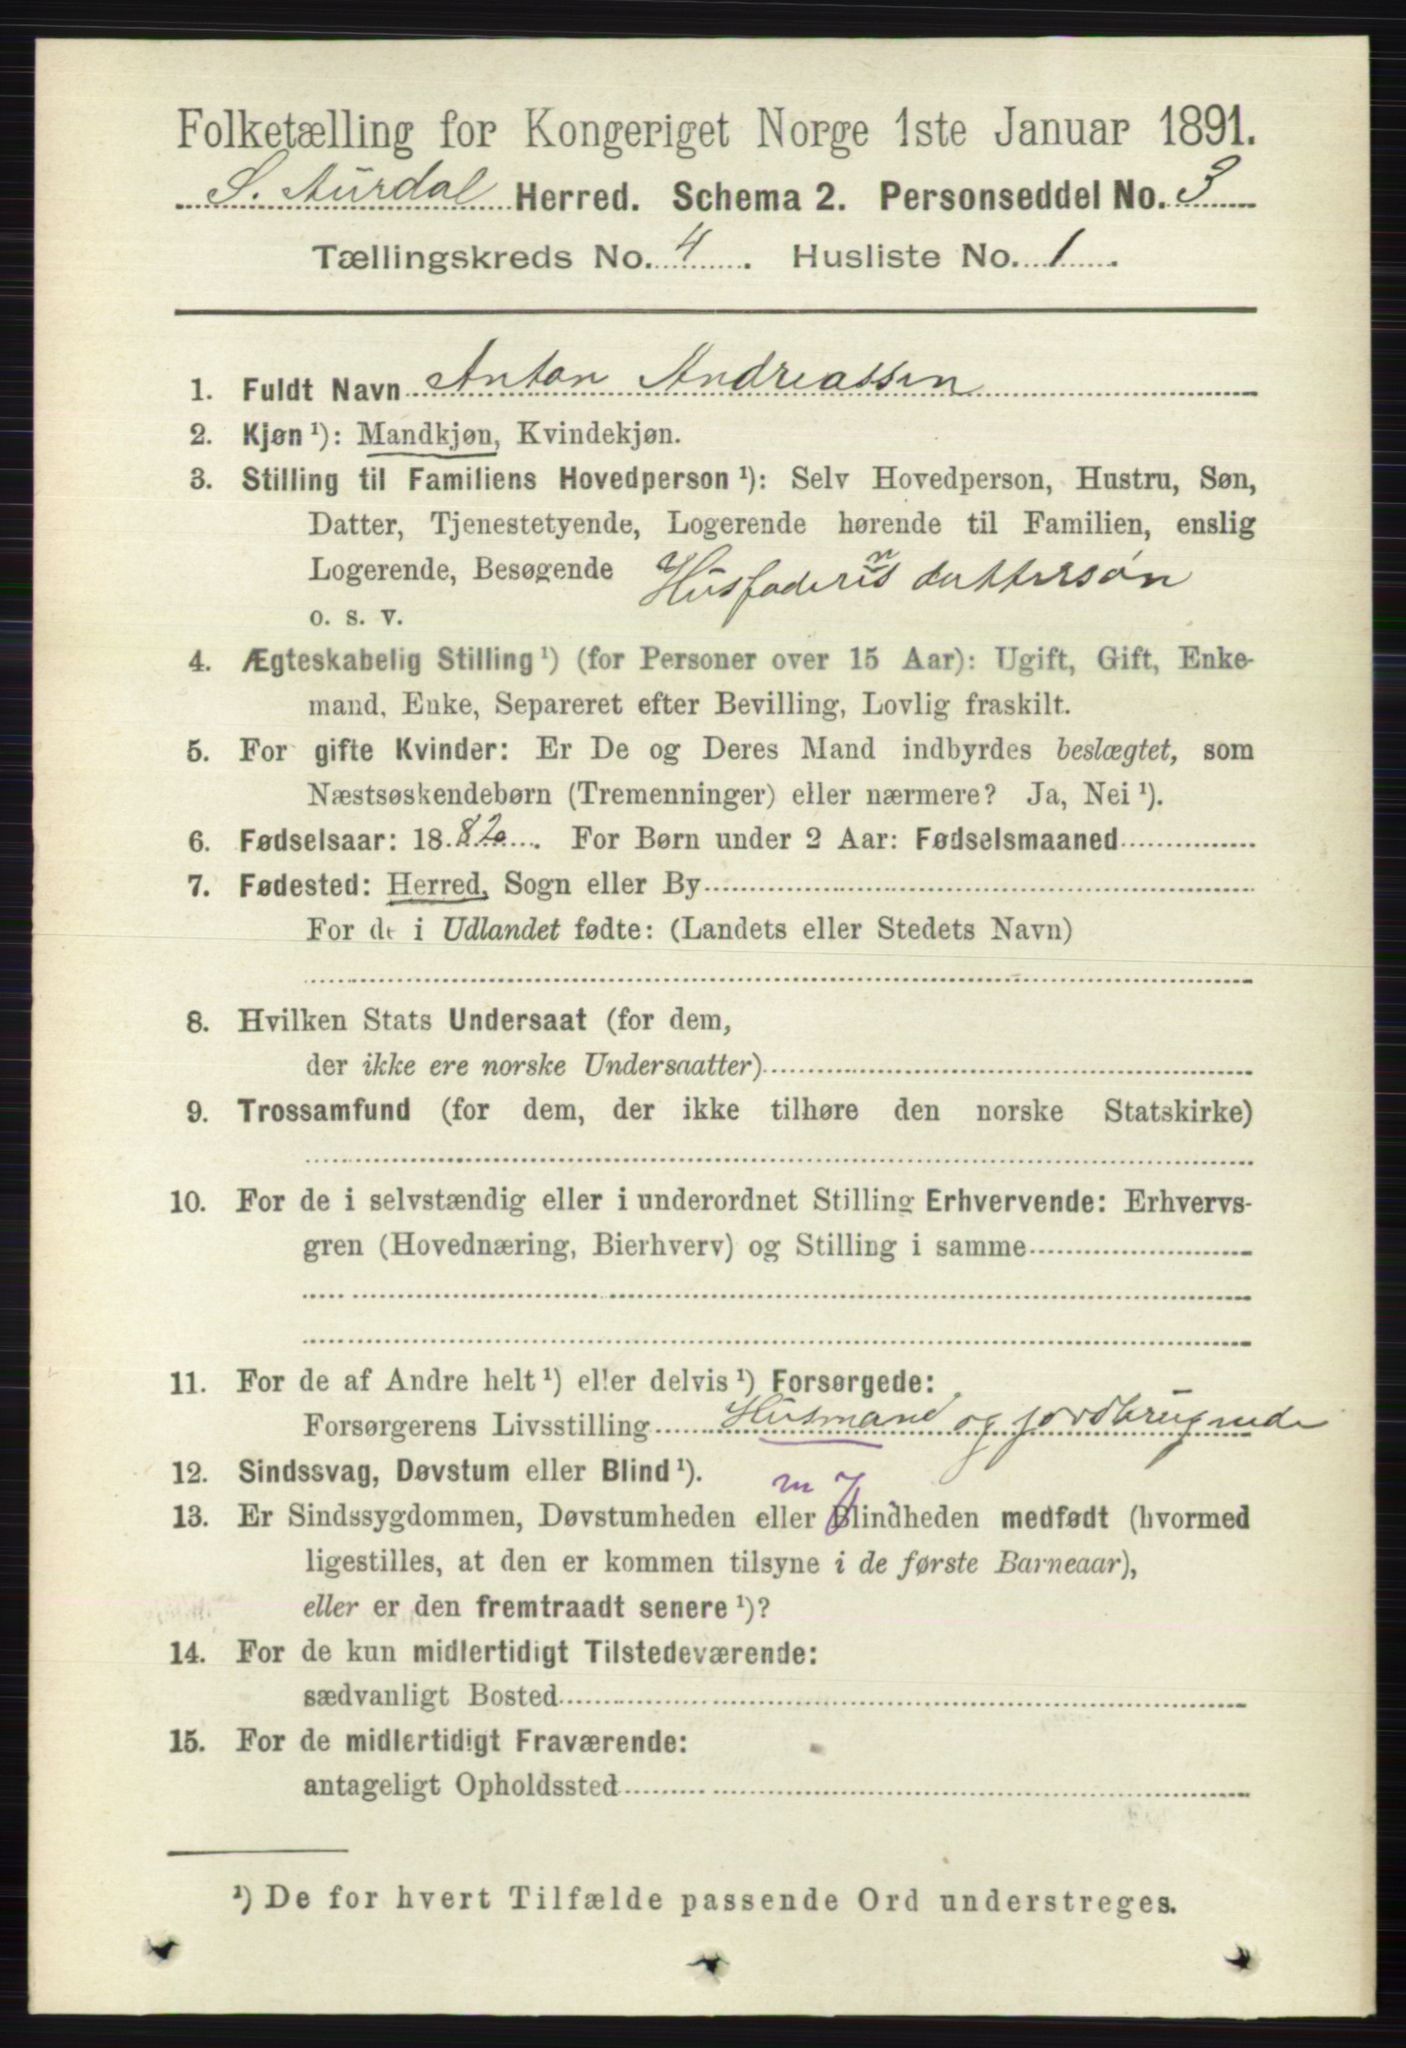 Folketælling for Kongeriget Norge 1ste Januar 1891.
S. Aurdal Herred. Schema 2. Personseddel No. 3
Tællingskreds No. 4. Husliste No. 1.
1. Fuldt Navn Anton Andreassen
2. Kjøn ¹): Mandkjøn, Kvindekjøn.
3. Stilling til Familiens Hovedperson ¹): Selv Hovedperson, Hustru, Søn,
Datter, Tjenestetyende, Logerende hørende til Familien, enslig
Logerende, Besøgende Husfaderens dattersøn
o. s. v.
4. Ægteskabelig Stilling ¹) (for Personer over 15 Aar): Ugift, Gift, Enke-
mand, Enke, Separeret efter Bevilling, Lovlig fraskilt.
5. For gifte Kvinder: Er De og Deres Mand indbyrdes beslægtet, som
Næstsøskendebørn (Tremenninger) eller nærmere? Ja, Nei ¹).
6. Fødselsaar: 1882. For Børn under 2 Aar: Fødselsmaaned
7. Fødested: Herred, Sogn eller By
For de i Udlandet fødte: (Landets eller Stedets Navn)
8. Hvilken Stats Undersaat (for dem,
der ikke ere norske Undersaatter)
9. Trossamfund (for dem, der ikke tilhøre den norske Statskirke)
10. For de i selvstændig eller i underordnet Stilling Erhvervende: Erhvervs-
gren (Hovednæring, Bierhverv) og Stilling i samme
11. For de af Andre helt ¹) eller delvis ¹) Forsørgede:
Forsørgerens Livsstilling Husmand og jordbrugende
12. Sindssvag, Døvstum eller Blind ¹).
m 7
13. Er Sindssygdommen, Døvstumheden eller Blindheden medfødt (hvormed
ligestilles, at den er kommen tilsyne i de første Barneaar),
eller er den fremtraadt senere ¹)?
14. For de kun midlertidigt Tilstedeværende:
sædvanligt Bosted
15. For de midlertidigt Fraværende:
antageligt Opholdssted
¹) De for hvert Tilfælde passende Ord understreges.